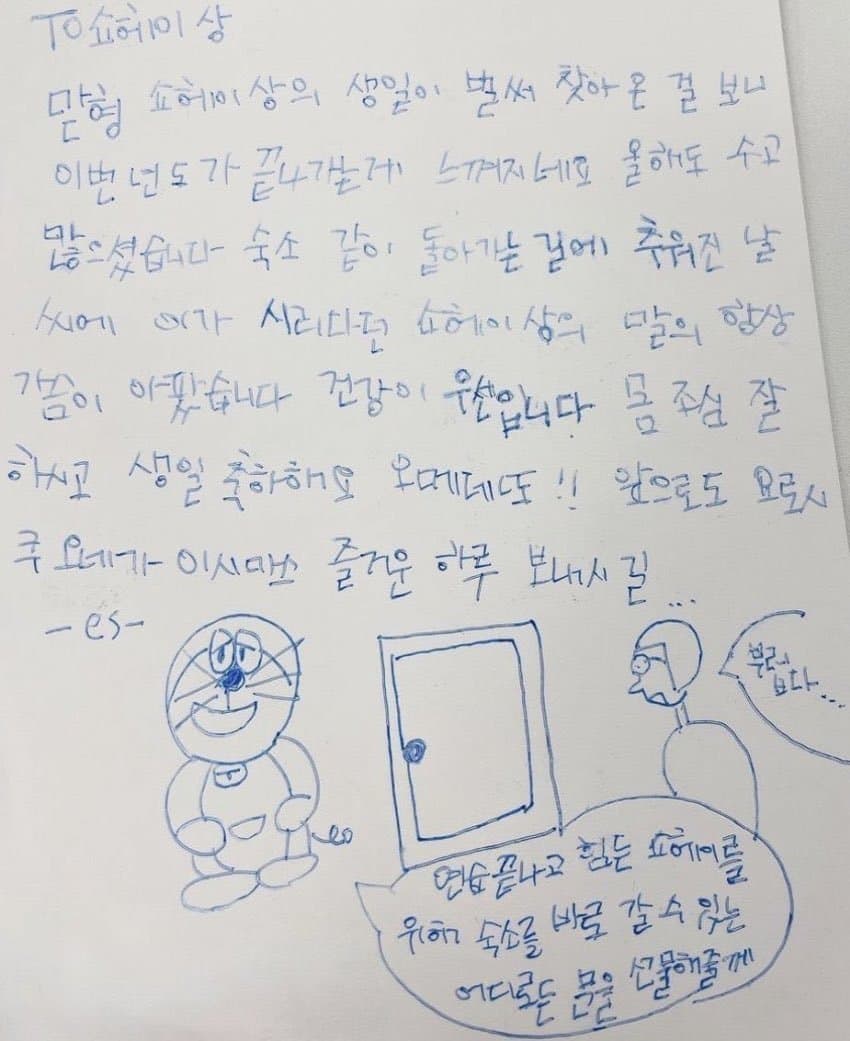 TO 쇼헤이상
맏형 쇼헤이상의 생일이 벌써 찾아 온 걸 보니
이번년도가 끝나가는게 느껴지네요 올해도 수고
많으셨습니다 숙소 같이 돌아가는 길에 추워진 날
씨에 이가 시리다던 쇼헤이상의 말의 항상
가슴이 아팠습니다 건강이 우선입니다 몸 조심 잘
하시고 생일 축하해요 오메데또!! 앞으로도 요로시
쿠 오네가이시마스 즐거운 하루 보내시길...
-es-
부러
보다...
연습끝나고 힘든 쇼헤이를
위해 숙소를 바로 갈 수 있는
어디로든 문을 선물해줄게